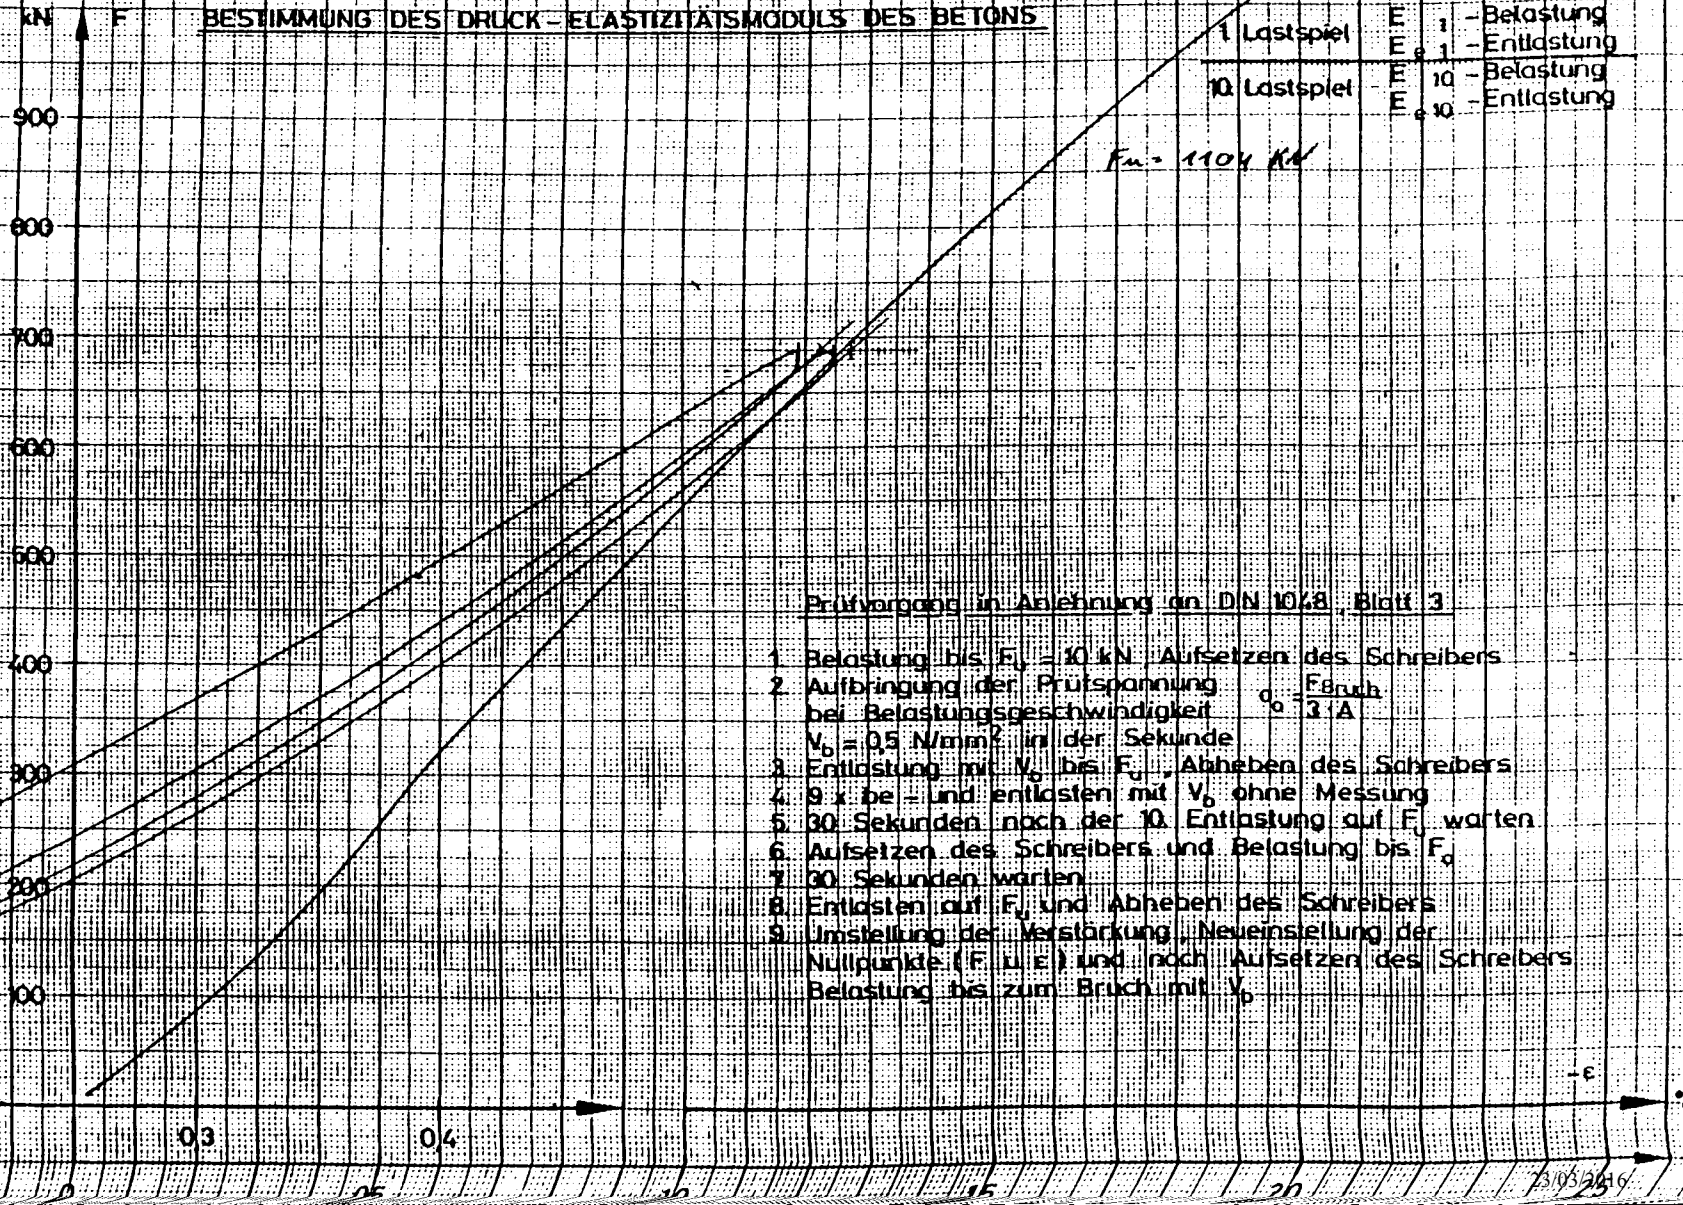 kN F BESTIMMUNG DES DRUCK-ELASTIZITÄTSMODULS DES BETONS
1. Lastspiel E 1 - Belastung
E e 1 - Entlastung
10. Lastspiel E 10 - Belastung
E e 10 - Entlastung
900
Fu = 1104 KN
800
700
600
500
Prüfvorgang in Anlehnung an DIN 1048, Blatt 3
400
1. Belastung bis Fu = 10 kN, Aufsetzen des Schreibers
2. Aufbringung der Prüfspannung σo = FBruch / 3·A
bei Belastungsgeschwindigkeit
Vb = 0,5 N/mm² in der Sekunde
300
3. Entlastung mit Vb bis Fu, Abheben des Schreibers
4. 9 x be- und entlasten mit Vb ohne Messung
5. 30 Sekunden nach der 10. Entlastung auf Fu warten
6. Aufsetzen des Schreibers und Belastung bis Fo
200
7. 30 Sekunden warten
8. Entlasten auf Fu und Abheben des Schreibers
9. Umstellung der Verstärkung, Neueinstellung der
Nullpunkte (F u. ε) und nach Aufsetzen des Schreibers
100
Belastung bis zum Bruch mit Vb
-ε
0,3 0,4
0 05 10 15 20 25
23/03/2016